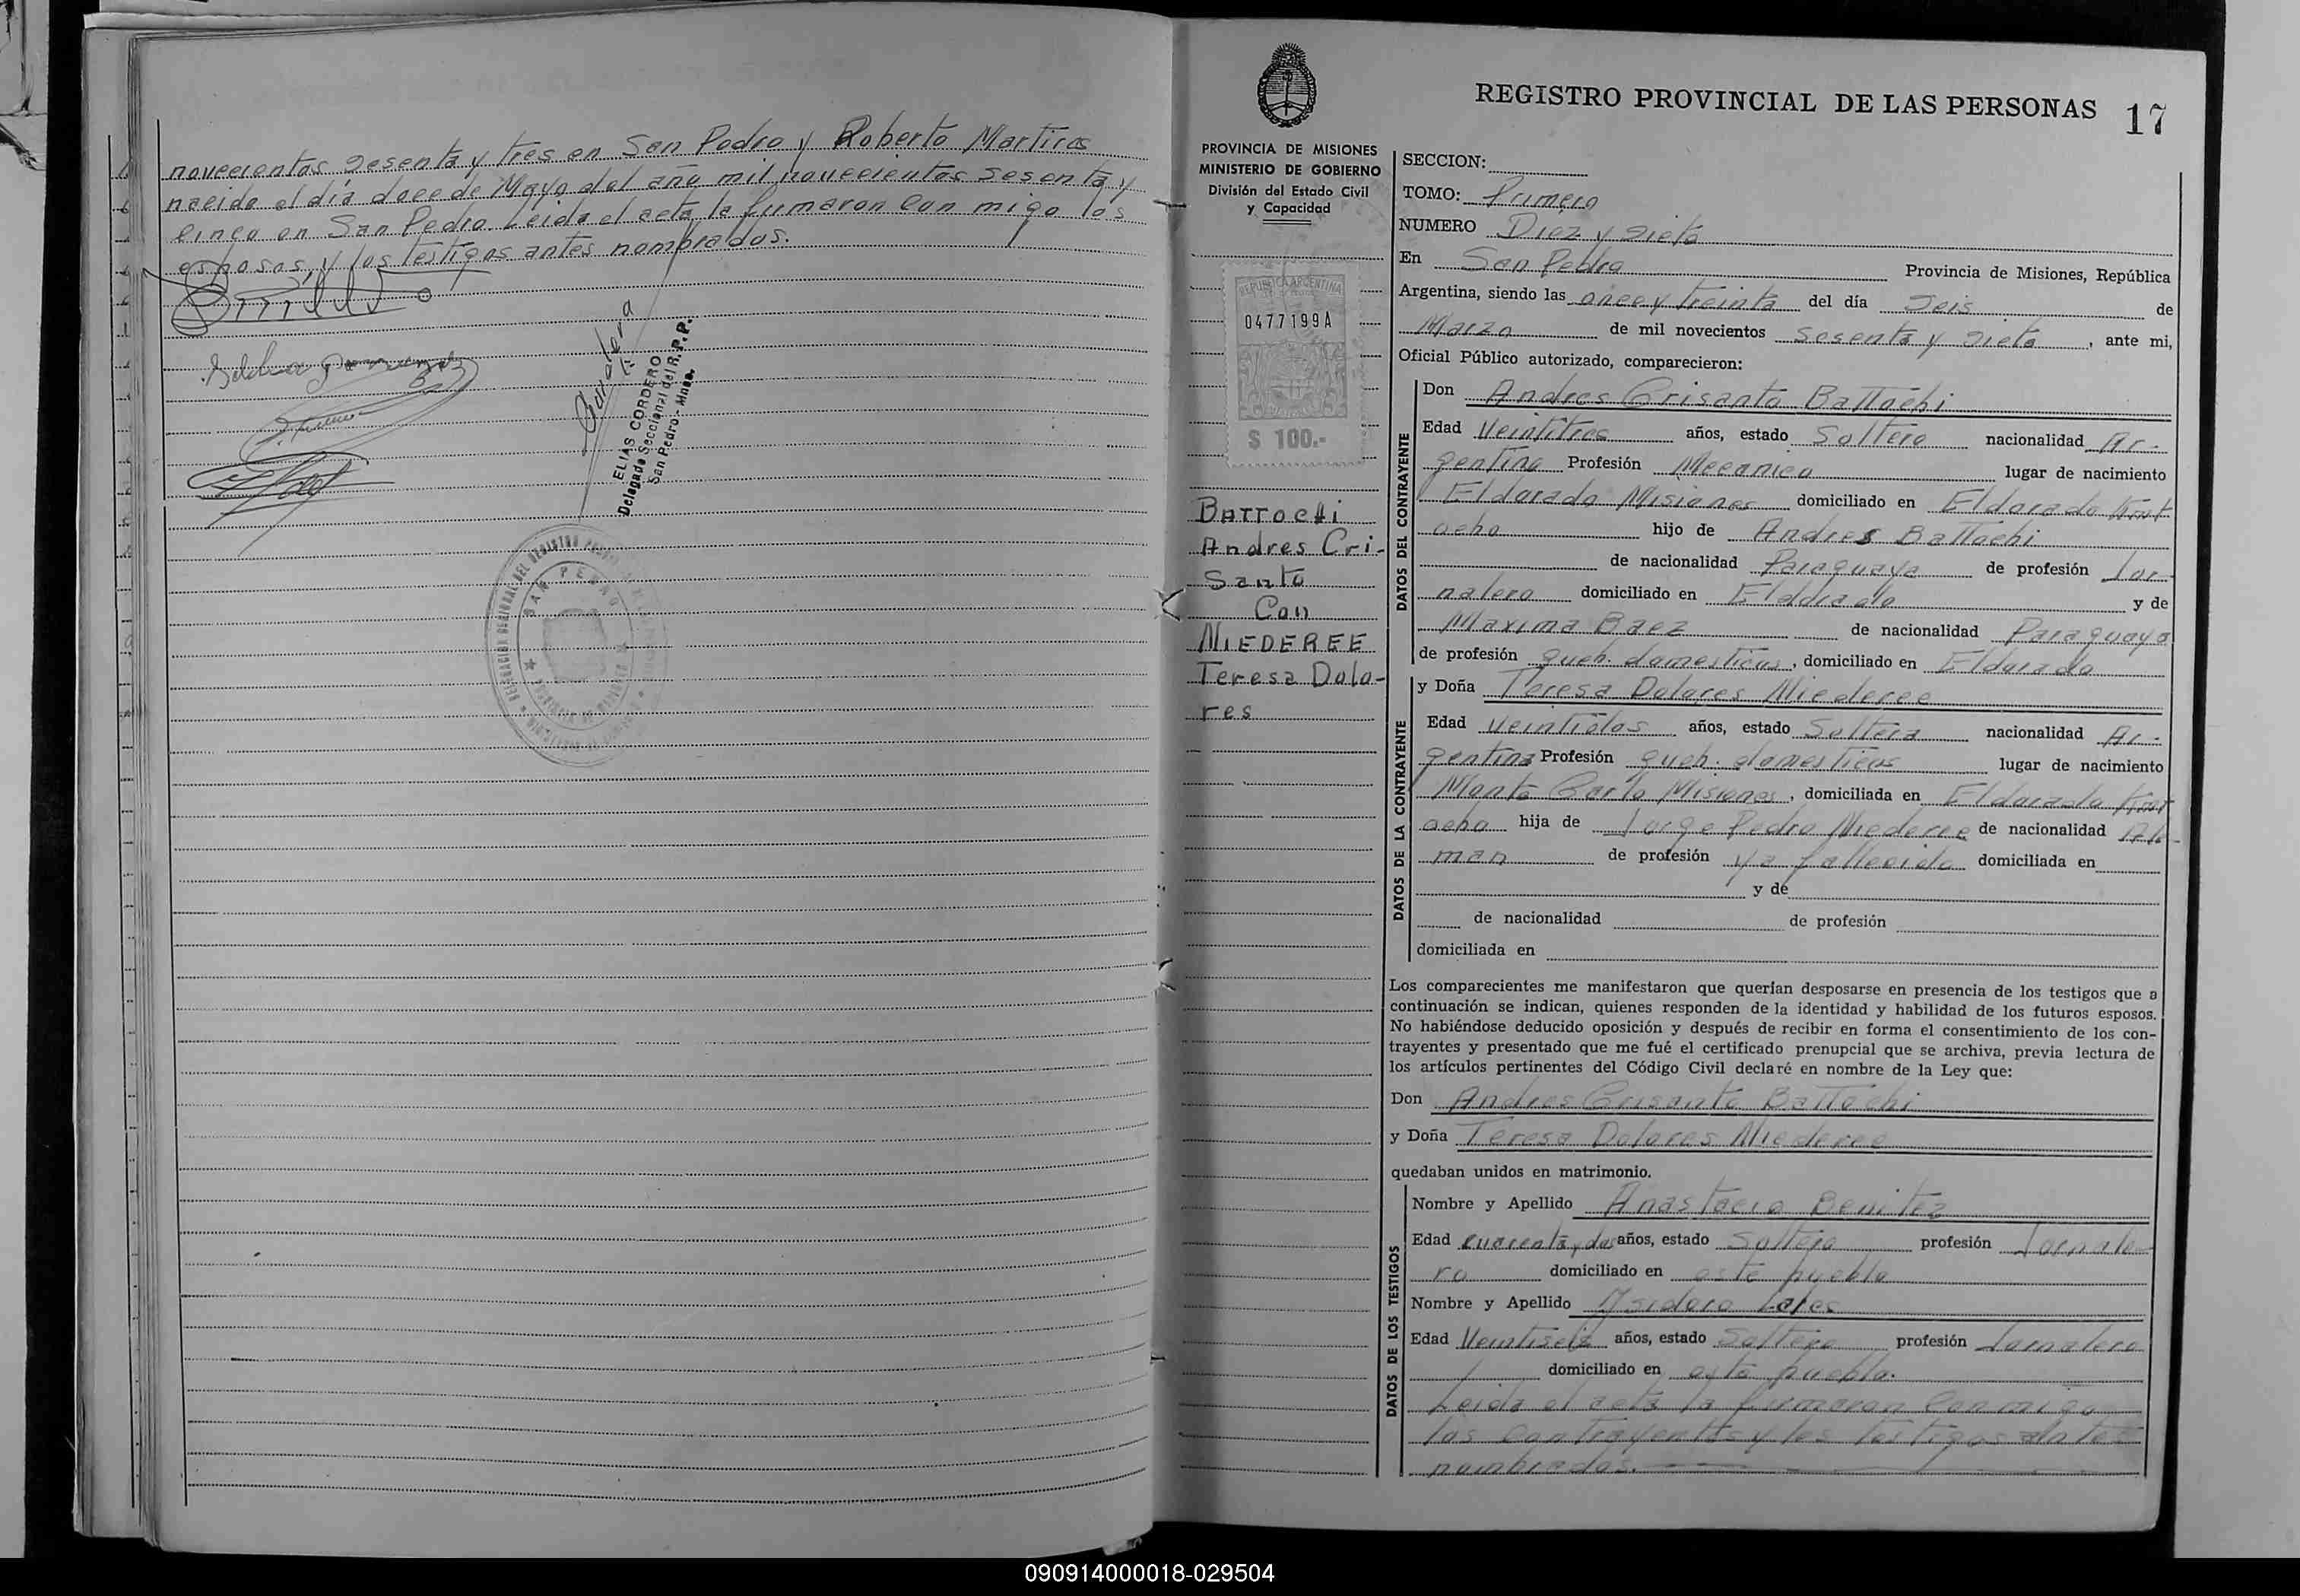 novecientos sesenta y tres en San Pedro y Roberto Martires
nacido el día doce de Mayo del año mil novecientos sesenta y
cinco en San Pedro Leida el acta la firmaron con migo los
esposos, y los testigos antes nombrados.
ELIAS CORDERO
Delegado Seccional del R.P.P.
San Pedro - Mnes.
SAN PEDRO
REGISTRO PROVINCIAL DE LAS PERSONAS 17
PROVINCIA DE MISIONES
MINISTERIO DE GOBIERNO
División del Estado Civil
y Capacidad
REPUBLICA ARGENTINA
0477199A
$ 100.-
Battochi
Andres Cri-
santo
Con
NIEDEREE
Teresa Dolo-
res
SECCION:
TOMO: Primero
NUMERO Diez y siete
En San Pedro Provincia de Misiones, República
Argentina, siendo las once y treinta del día seis de
Marzo de mil novecientos sesenta y siete, ante mi,
Oficial Público autorizado, comparecieron:
DATOS DEL CONTRAYENTE
Don Andres Crisanto Battochi
Edad Veintitres años, estado Soltero nacionalidad Ar-
gentino Profesión Mecanico lugar de nacimiento
Eldorado Misiones domiciliado en Eldorado
ocho hijo de Andres Battochi
de nacionalidad Paraguaya de profesión Jor-
nalero domiciliado en Eldorado y de
Maxima Baez de nacionalidad Paraguaya
de profesión queh. domesticos, domiciliado en Eldorado
DATOS DE LA CONTRAYENTE
y Doña Teresa Dolores Niederee
Edad Veintidos años, estado Soltera nacionalidad Ar-
gentina Profesión queh. domesticos lugar de nacimiento
Monte Carlo Misiones, domiciliada en Eldorado
ocho hija de Jorge Pedro Niederee de nacionalidad Ale-
man de profesión ya fallecido domiciliada en
y de
de nacionalidad de profesión
domiciliada en
Los comparecientes me manifestaron que querían desposarse en presencia de los testigos que a
continuación se indican, quienes responden de la identidad y habilidad de los futuros esposos.
No habiéndose deducido oposición y después de recibir en forma el consentimiento de los con-
trayentes y presentado que me fué el certificado prenupcial que se archiva, previa lectura de
los artículos pertinentes del Código Civil declaré en nombre de la Ley que:
Don Andres Crisanto Battochi
y Doña Teresa Dolores Niederee
quedaban unidos en matrimonio.
DATOS DE LOS TESTIGOS
Nombre y Apellido Anastacio Benitez
Edad cuarenta y dos años, estado Soltero profesión Jornale-
ro domiciliado en este pueblo
Nombre y Apellido Ysidoro Lopes
Edad Veintiseis años, estado Soltero profesión Jornalero
domiciliado en este pueblo.
Leida el acta la firmaron con migo
los contrayentes y los testigos antes
nombrados.
090914000018-029504